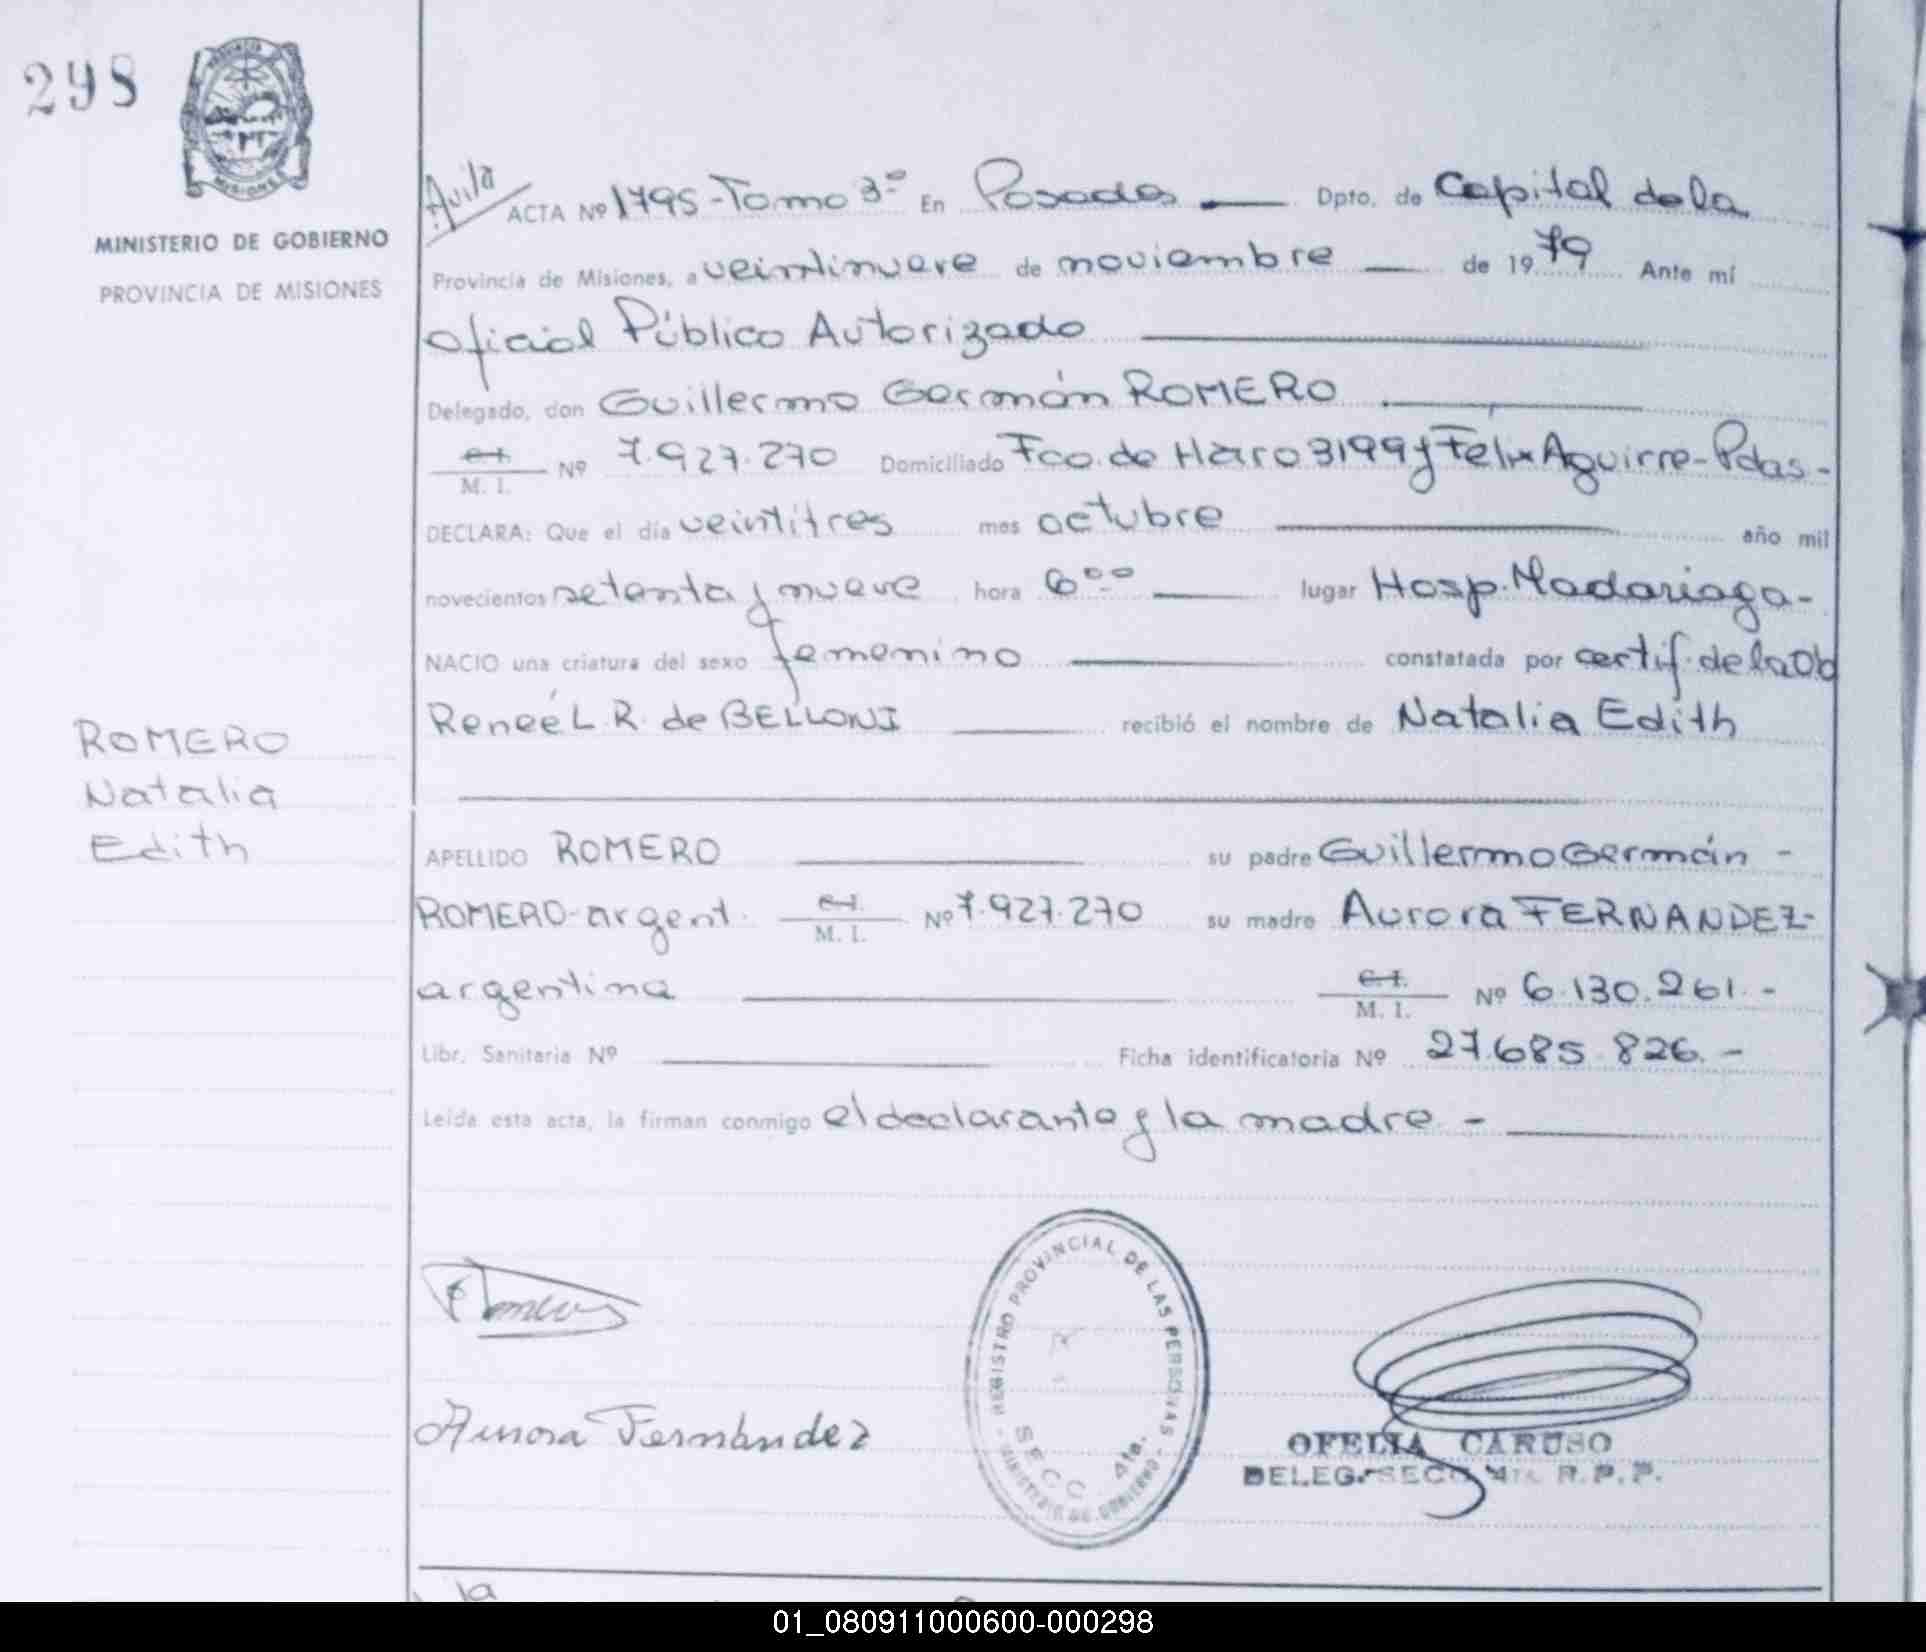 298
MISIONES
MINISTERIO DE GOBIERNO
PROVINCIA DE MISIONES
Avila
ACTA Nº 1795-Tomo 3º En Posadas Dpto. de Capital de la
Provincia de Misiones, a veintinueve de noviembre de 1979 Ante mí
Oficial Público Autorizado
Delegado, don Guillermo Germán ROMERO
C.I.
M. I. Nº 7.927.270 Domiciliado Fco. de Haro 3199 y Félix Aguirre-Pdas-
DECLARA: Que el día veintitres mes octubre año mil
novecientos setenta y nueve hora 6°° lugar Hosp. Madariaga-
NACIO una criatura del sexo femenino constatada por certif. de la Ob
Reneé L. R. de BELLONI recibió el nombre de Natalia Edith
ROMERO
Natalia
Edith
APELLIDO ROMERO su padre Guillermo Germán -
ROMERO-argent. C.I.
M. I. Nº 7.927.270 su madre Aurora FERNANDEZ-
argentina C.I.
M. I. Nº 6.130.261.-
Libr. Sanitaria Nº Ficha identificatoria Nº 27.685.826.-
Leída esta acta, la firman conmigo el declarante y la madre.-
REGISTRO PROVINCIAL DE LAS PERSONAS - MINISTERIO DE GOBIERNO -
SECC 4ta.
Aurora Fernández
OFELIA CARUSO
DELEG. SECC 4TA R.P.P.
01_080911000600-000298